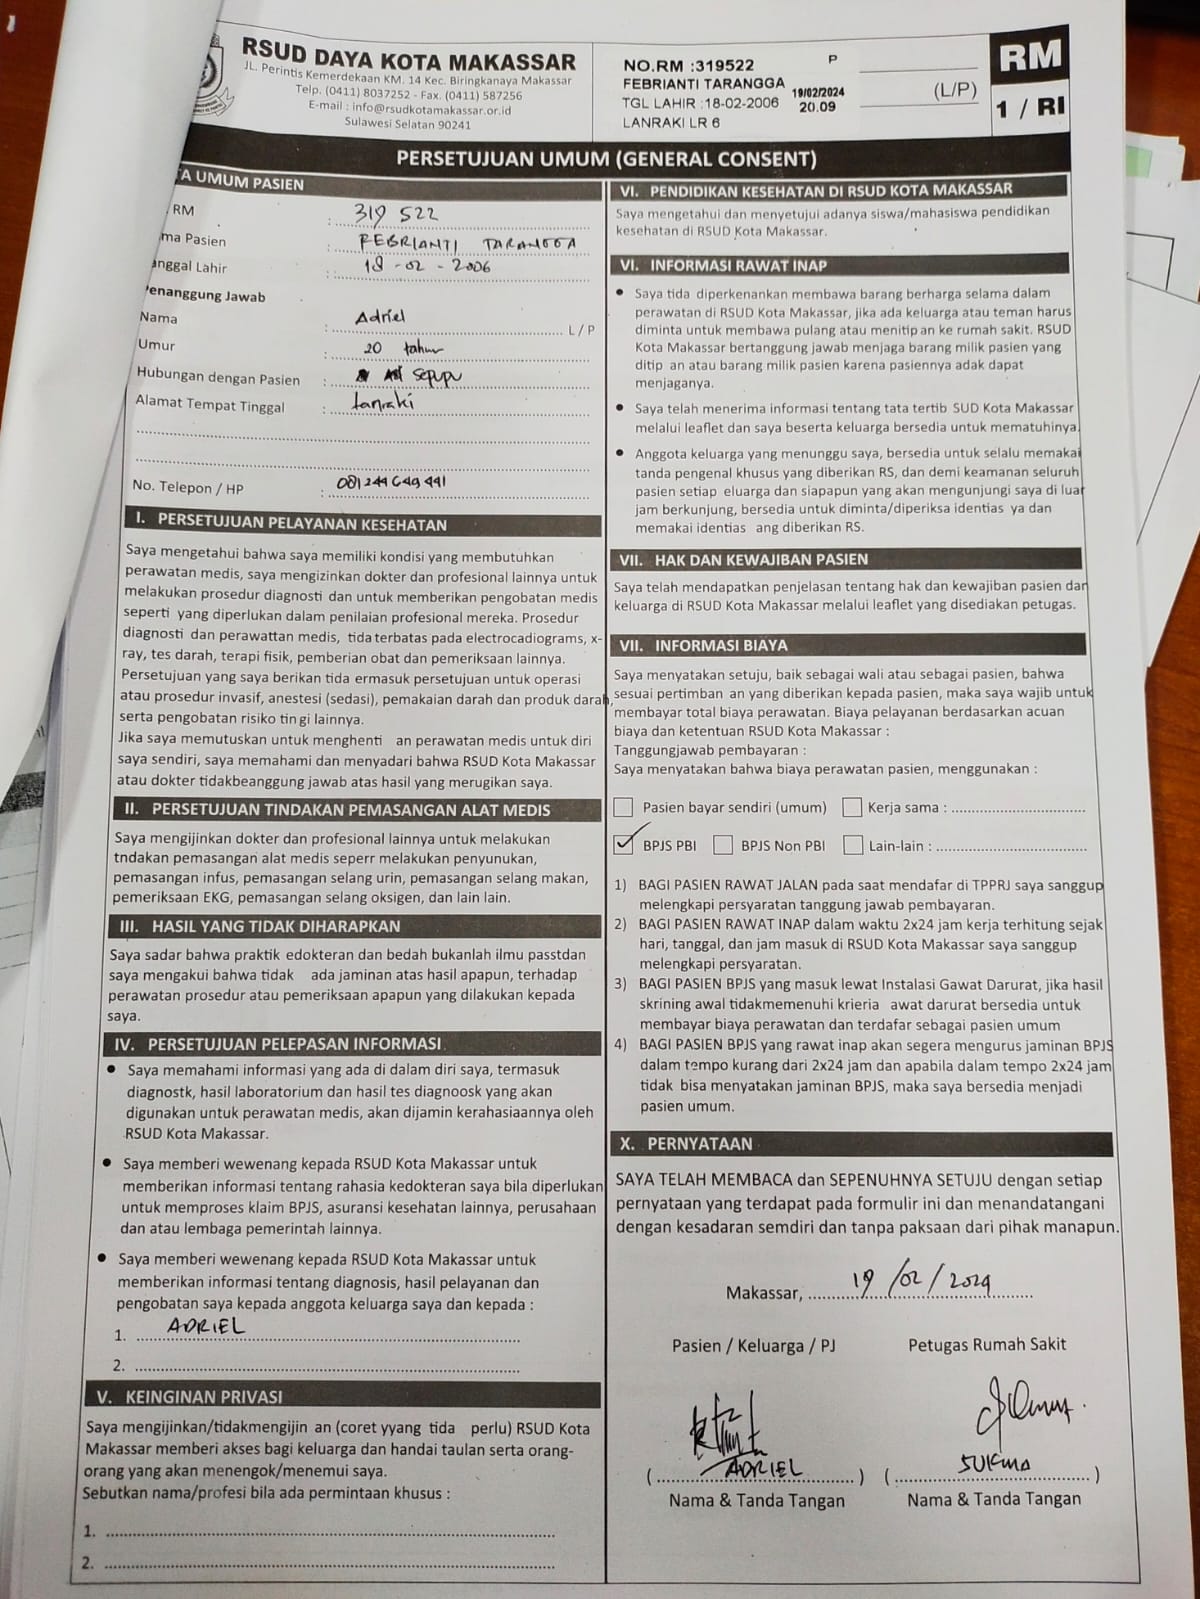 RSUD DAYA KOTA MAKASSAR
JL. Perintis Kemerdekaan KM. 14 Kec. Biringkanaya Makassar
Telp. (0411) 8037252 - Fax. (0411) 587256
E-mail : info@rsudkotamakassar.or.id
Sulawesi Selatan 90241
NO.RM :319522
P
FEBRIANTI TARANGGA
19/02/2024
TGL LAHIR :18-02-2006
20.09
LANRAKI LR 6
(L/P)
RM
1 / RI
PERSETUJUAN UMUM (GENERAL CONSENT)
A UMUM PASIEN
RM : 319 522
ma Pasien : FEBRIANTI TARANGGA
anggal Lahir : 18 - 02 - 2006
Penanggung Jawab
Nama : Adriel L / P
Umur : 20 tahun
Hubungan dengan Pasien : sepupu
Alamat Tempat Tinggal : lanraki
No. Telepon / HP : 081244649441
I. PERSETUJUAN PELAYANAN KESEHATAN
Saya mengetahui bahwa saya memiliki kondisi yang membutuhkan
perawatan medis, saya mengizinkan dokter dan profesional lainnya untuk
melakukan prosedur diagnosti dan untuk memberikan pengobatan medis
seperti yang diperlukan dalam penilaian profesional mereka. Prosedur
diagnosti dan perawattan medis, tida terbatas pada electrocadiograms, x-
ray, tes darah, terapi fisik, pemberian obat dan pemeriksaan lainnya.
Persetujuan yang saya berikan tida ermasuk persetujuan untuk operasi
atau prosedur invasif, anestesi (sedasi), pemakaian darah dan produk darah,
serta pengobatan risiko tin gi lainnya.
Jika saya memutuskan untuk menghenti an perawatan medis untuk diri
saya sendiri, saya memahami dan menyadari bahwa RSUD Kota Makassar
atau dokter tidakbeanggung jawab atas hasil yang merugikan saya.
II. PERSETUJUAN TINDAKAN PEMASANGAN ALAT MEDIS
Saya mengijinkan dokter dan profesional lainnya untuk melakukan
tndakan pemasangan alat medis seperr melakukan penyunukan,
pemasangan infus, pemasangan selang urin, pemasangan selang makan,
pemeriksaan EKG, pemasangan selang oksigen, dan lain lain.
III. HASIL YANG TIDAK DIHARAPKAN
Saya sadar bahwa praktik edokteran dan bedah bukanlah ilmu passtdan
saya mengakui bahwa tidak ada jaminan atas hasil apapun, terhadap
perawatan prosedur atau pemeriksaan apapun yang dilakukan kepada
saya.
IV. PERSETUJUAN PELEPASAN INFORMASI
• Saya memahami informasi yang ada di dalam diri saya, termasuk
diagnostk, hasil laboratorium dan hasil tes diagnoosk yang akan
digunakan untuk perawatan medis, akan dijamin kerahasiaannya oleh
RSUD Kota Makassar.
• Saya memberi wewenang kepada RSUD Kota Makassar untuk
memberikan informasi tentang rahasia kedokteran saya bila diperlukan
untuk memproses klaim BPJS, asuransi kesehatan lainnya, perusahaan
dan atau lembaga pemerintah lainnya.
• Saya memberi wewenang kepada RSUD Kota Makassar untuk
memberikan informasi tentang diagnosis, hasil pelayanan dan
pengobatan saya kepada anggota keluarga saya dan kepada :
1. ADRIEL
2.
V. KEINGINAN PRIVASI
Saya mengijinkan/tidakmengijin an (coret yyang tida perlu) RSUD Kota
Makassar memberi akses bagi keluarga dan handai taulan serta orang-
orang yang akan menengok/menemui saya.
Sebutkan nama/profesi bila ada permintaan khusus :
1.
2.
VI. PENDIDIKAN KESEHATAN DI RSUD KOTA MAKASSAR
Saya mengetahui dan menyetujui adanya siswa/mahasiswa pendidikan
kesehatan di RSUD Kota Makassar.
VI. INFORMASI RAWAT INAP
• Saya tida diperkenankan membawa barang berharga selama dalam
perawatan di RSUD Kota Makassar, jika ada keluarga atau teman harus
diminta untuk membawa pulang atau menitip an ke rumah sakit. RSUD
Kota Makassar bertanggung jawab menjaga barang milik pasien yang
ditip an atau barang milik pasien karena pasiennya adak dapat
menjaganya.
• Saya telah menerima informasi tentang tata tertib SUD Kota Makassar
melalui leaflet dan saya beserta keluarga bersedia untuk mematuhinya.
• Anggota keluarga yang menunggu saya, bersedia untuk selalu memakai
tanda pengenal khusus yang diberikan RS, dan demi keamanan seluruh
pasien setiap eluarga dan siapapun yang akan mengunjungi saya di luar
jam berkunjung, bersedia untuk diminta/diperiksa identias ya dan
memakai identias ang diberikan RS.
VII. HAK DAN KEWAJIBAN PASIEN
Saya telah mendapatkan penjelasan tentang hak dan kewajiban pasien dan
keluarga di RSUD Kota Makassar melalui leaflet yang disediakan petugas.
VII. INFORMASI BIAYA
Saya menyatakan setuju, baik sebagai wali atau sebagai pasien, bahwa
sesuai pertimban an yang diberikan kepada pasien, maka saya wajib untuk
membayar total biaya perawatan. Biaya pelayanan berdasarkan acuan
biaya dan ketentuan RSUD Kota Makassar :
Tanggungjawab pembayaran :
Saya menyatakan bahwa biaya perawatan pasien, menggunakan :
Pasien bayar sendiri (umum) Kerja sama :
✓ BPJS PBI BPJS Non PBI Lain-lain :
1) BAGI PASIEN RAWAT JALAN pada saat mendafar di TPPRJ saya sanggup
melengkapi persyaratan tanggung jawab pembayaran.
2) BAGI PASIEN RAWAT INAP dalam waktu 2x24 jam kerja terhitung sejak
hari, tanggal, dan jam masuk di RSUD Kota Makassar saya sanggup
melengkapi persyaratan.
3) BAGI PASIEN BPJS yang masuk lewat Instalasi Gawat Darurat, jika hasil
skrining awal tidakmemenuhi krieria awat darurat bersedia untuk
membayar biaya perawatan dan terdafar sebagai pasien umum
4) BAGI PASIEN BPJS yang rawat inap akan segera mengurus jaminan BPJS
dalam tempo kurang dari 2x24 jam dan apabila dalam tempo 2x24 jam
tidak bisa menyatakan jaminan BPJS, maka saya bersedia menjadi
pasien umum.
X. PERNYATAAN
SAYA TELAH MEMBACA dan SEPENUHNYA SETUJU dengan setiap
pernyataan yang terdapat pada formulir ini dan menandatangani
dengan kesadaran semdiri dan tanpa paksaan dari pihak manapun.
Makassar, 19/02/2024
Pasien / Keluarga / PJ Petugas Rumah Sakit
(ADRIEL) (SUKMA)
Nama & Tanda Tangan Nama & Tanda Tangan